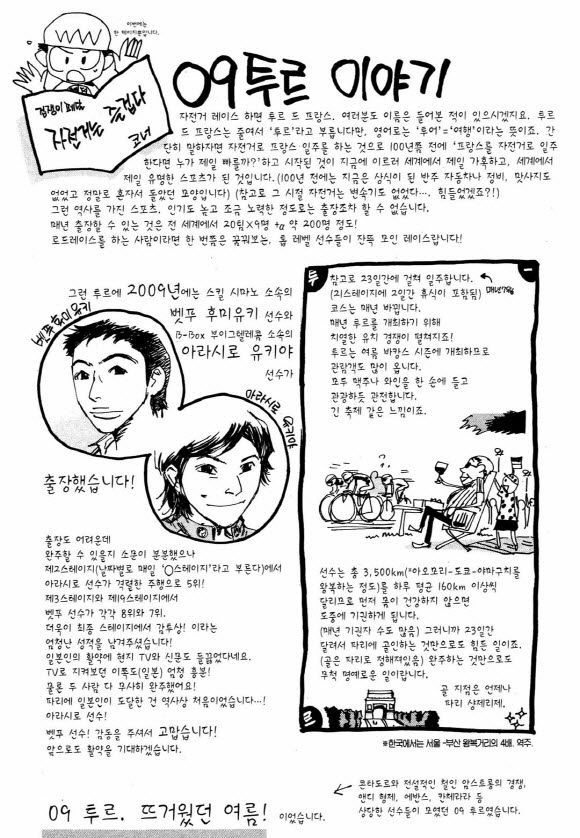 이번에는
한 페이지뿐입니다.
겁쟁이 페달
자전거는 즐겁다
코너
09 투르 이야기
자전거 레이스 하면 투르 드 프랑스. 여러분도 이름은 들어본 적이 있으시겠지요. 투르
드 프랑스는 줄여서 '투르'라고 부릅니다만, 영어로는 '투어'='여행'이라는 뜻이죠. 간
단히 말하자면 자전거로 프랑스 일주를 하는 것으로 100년쯤 전에 '프랑스를 자전거로 일주
한다면 누가 제일 빠를까?'하고 시작된 것이 지금에 이르러 세계에서 제일 가혹하고, 세계에서
제일 유명한 스포츠가 된 것입니다.(100년 전에는 지금은 상식이 된 반주 자동차나 정비, 맛사지도
없었고 정말로 혼자서 돌았던 모양입니다) (참고로 그 시절 자전거는 변속기도 없었다…. 힘들었겠죠?!)
그런 역사를 가진 스포츠. 인기도 높고 조금 노력한 정도로는 출장조차 할 수 없습니다.
매년 출장할 수 있는 것은 전 세계에서 20팀×9명 +α 약 200명 정도!
로드레이스를 하는 사람이라면 한 번쯤은 꿈꿔보는. 톱 레벨 선수들이 잔뜩 모인 레이스랍니다!
그런 투르에 2009년에는 스킬 시마노 소속의
벳푸 후미유키 선수와
B-Box 부이그텔레콤 소속의
아라시로 유키야
선수가
벳푸 후미유키
아라시로 유키야
출장했습니다!
출장도 어려운데
완주할 수 있을지 소문이 분분했으나
제2스테이지(날짜별로 매일 '○스테이지'라고 부른다)에서
아라시로 선수가 격렬한 주행으로 5위!
제3스테이지와 제19스테이지에서
벳푸 선수가 각각 8위와 7위.
더욱이 최종 스테이지에서 감투상! 이라는
엄청난 성적을 남겨주셨습니다!
일본인의 활약에 현지 TV와 신문도 들끓었다네요.
TV로 지켜보던 이쪽도(일본) 엄청 흥분!
물론 두 사람 다 무사히 완주했어요!
파리에 일본인이 도달한 건 역사상 처음이었습니다…!
아라시로 선수!
벳푸 선수! 감동을 주셔서 고맙습니다!
앞으로도 활약을 기대하겠습니다.
투
참고로 23일간에 걸쳐 일주합니다.
매년 7월
(21스테이지에 2일간 휴식이 포함됨)
코스는 매년 바뀝니다.
매년 투르를 개최하기 위해
치열한 유치 경쟁이 펼쳐지죠!
투르는 여름 바캉스 시즌에 개최하므로
관람객도 많이 옵니다.
모두 맥주나 와인을 한 손에 들고
관광하듯 관전합니다.
긴 축제 같은 느낌이죠.
선수는 총 3,500km(*아오모리-도쿄-야마구치를
왕복하는 정도)를 하루 평균 160km 이상씩
달리므로 먼저 몸이 건강하지 않으면
도중에 기권하게 됩니다.
(매년 기권자 수도 많음) 그러니까 23일간
달려서 파리에 골인하는 것만으로도 힘든 일이죠.
(골은 파리로 정해져있음) 완주하는 것만으로도
무척 명예로운 일이랍니다.
골 지점은 언제나
파리 샹제리제.
르
※한국에서는 서울 -부산 왕복거리의 4배. 역주.
콘타도르와 전설적인 철인 암스트롱의 경쟁,
앤디 형제, 에반스, 칸체라라 등
상당한 선수들이 모였던 09 투르였습니다.
09 투르. 뜨거웠던 여름! 이었습니다.